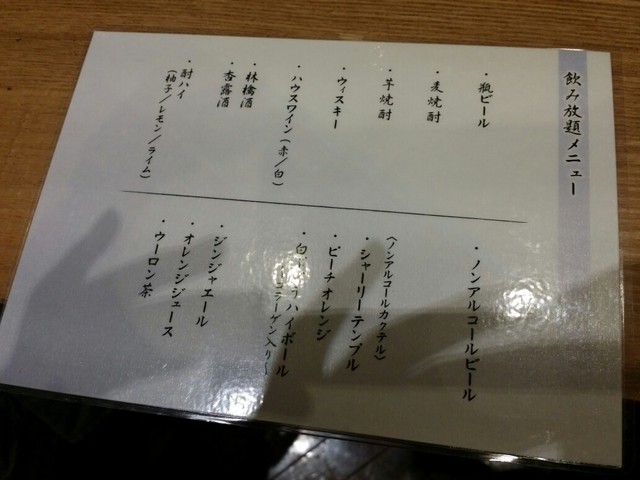 飲み放題メニュー
・瓶ビール
・麦焼酎
・芋焼酎
・ウィスキー
・ハウスワイン(赤/白)
・林檎酒
・杏露酒
・酎ハイ
(柚子/レモン/ライム)
・ノンアルコールビール
(ノンアルコールカクテル)
・シャーリーテンプル
・ピーチオレンジ
ハイボール
コラーゲン入り~
・ジンジャエール
・オレンジジュース
・ウーロン茶